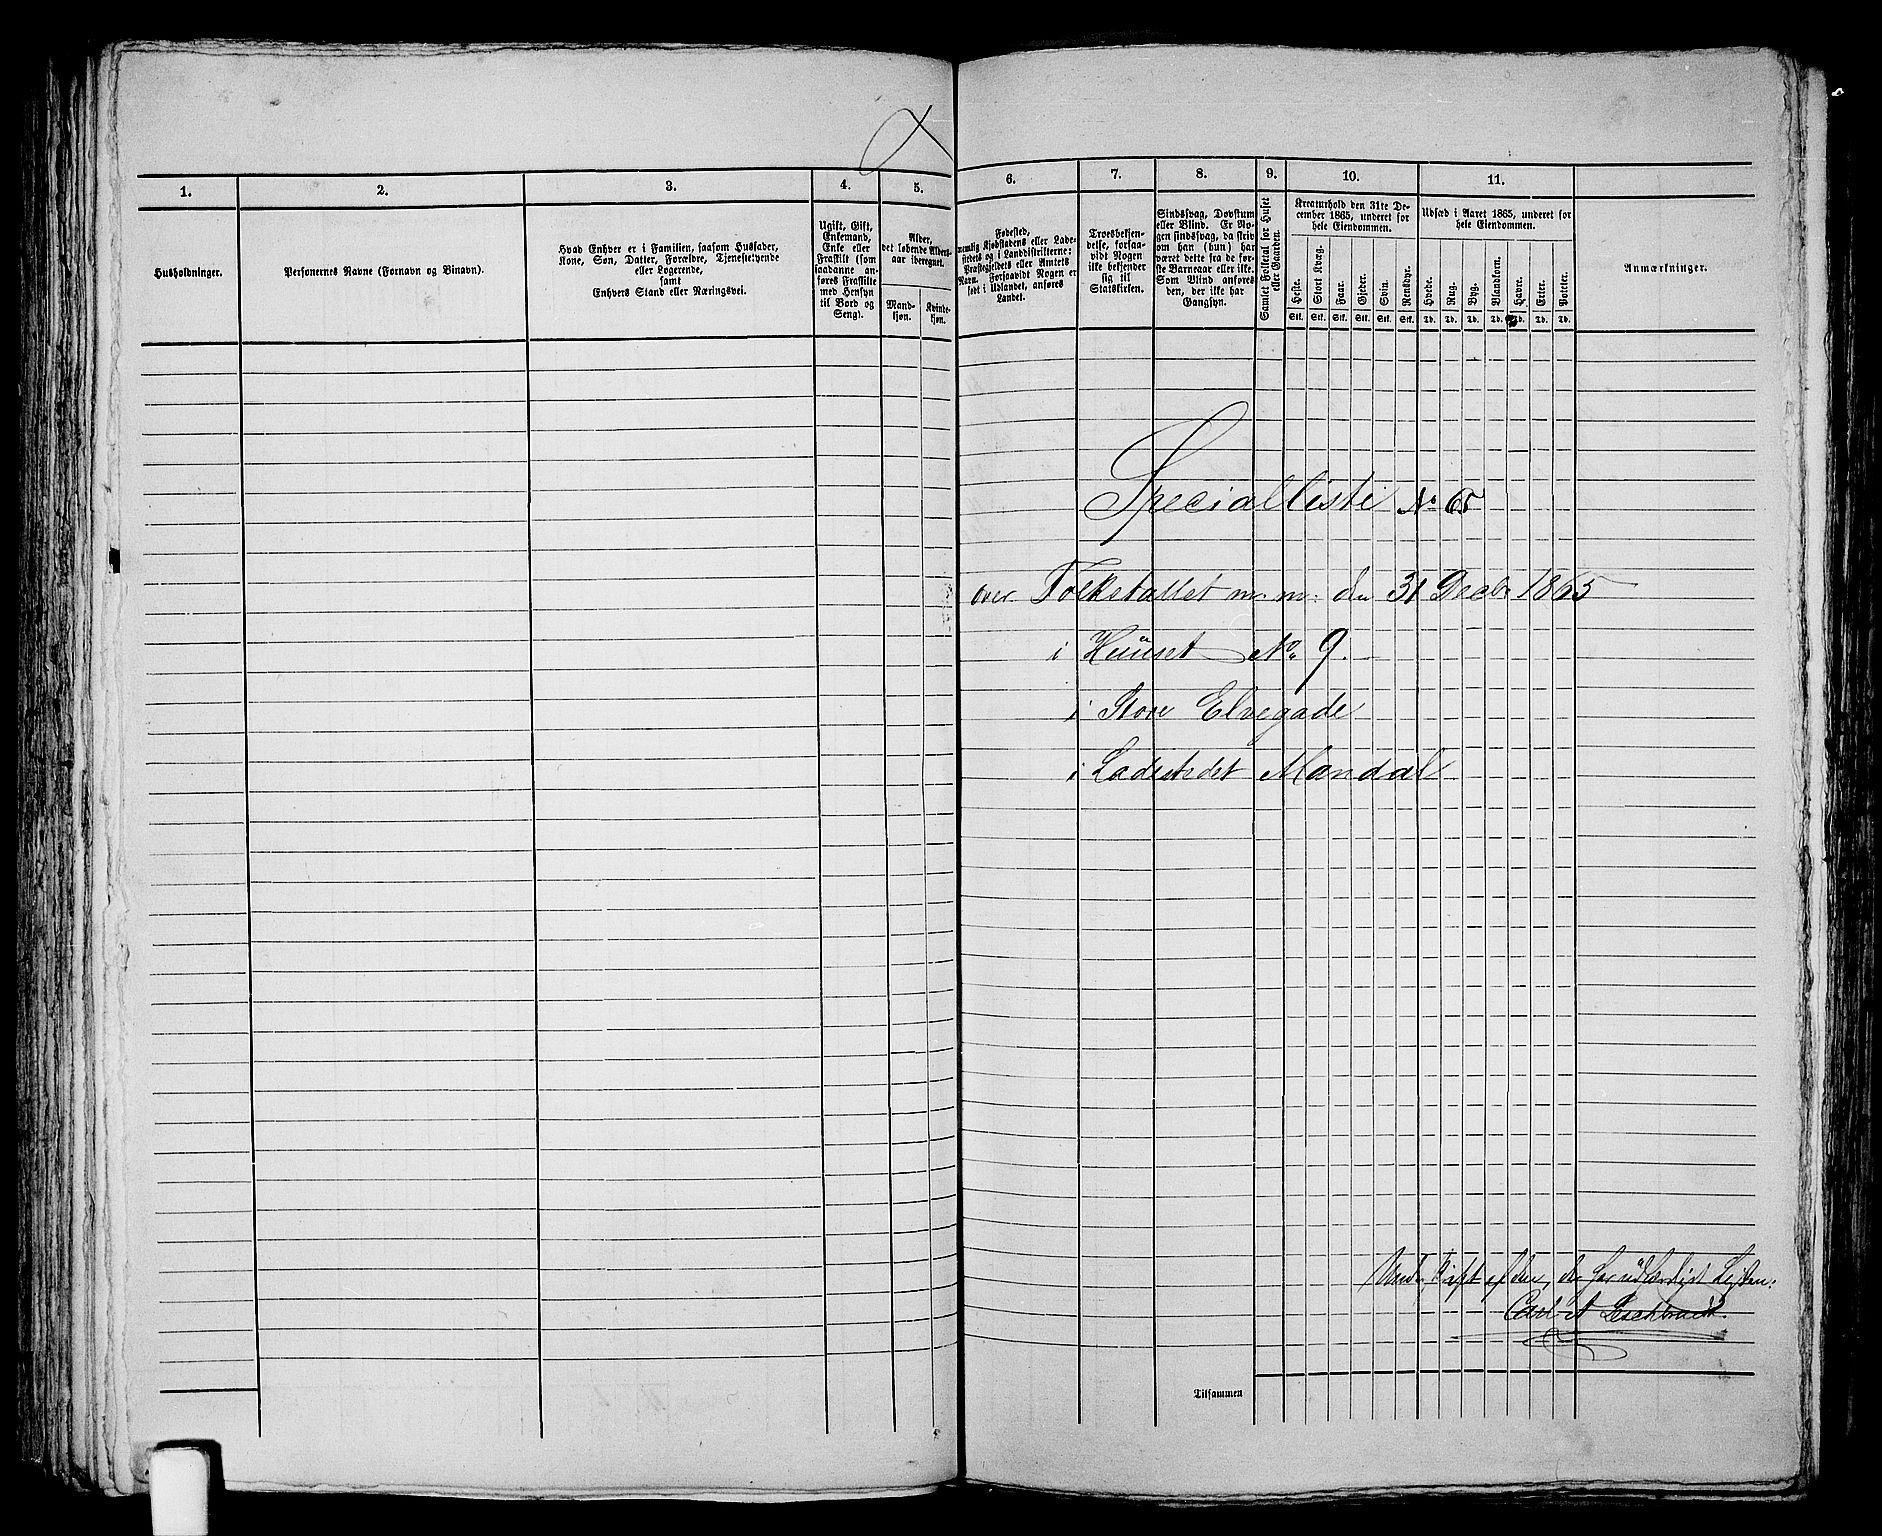 1.
2.
3.
4.
5.
6.
7.
8.
9.
10.
11.
Husholdninger.
Personernes Navne (Fornavn og Binavn).
Hvad Enhver er i Familien, saasom Husfader,
Kone, Søn, Datter, Forældre, Tjenestetyende
eller Logerende,
samt
Enhvers Stand eller Næringsvei.
Ugift, Gift,
Enkemand,
Enke eller
Fraskilt (som
saadanne an-
føres Fraskilte
med Hensyn
til Bord og
Seng).
Alder,
det løbende Alders-
aar iberegnet.
Mand-
kjøn.
Kvinde-
kjøn.
Fødested,
nemlig Kjøbstadens eller Lade-
stedets og i Landdistrikterne:
Præstegjeldets eller Amtets
Navn. Forsaavidt Nogen er
født i Udlandet, anføres
Landet.
Troesbekjen-
delse, forsaa-
vidt Nogen
ikke bekjender
sig til
Statskirken.
Sindssvag, Døvstum
eller Blind. Er No-
gen sindssvag, da skriv
om han (hun) har
været dette fra de før-
ste Barneaar eller ikke.
Som Blind anføres
den, der ikke har
Gangsyn.
Samlet Folketal for Huset
eller Gaarden.
Kreaturhold den 31te De-
cember 1865, underet for
hele Eiendommen.
Heste.
Stort Kvæg.
Faar.
Gjeder.
Svin.
Rensdyr.
Stk. Stk. Stk. Stk. Stk. Stk.
Udsæd i Aaret 1865, underet for
hele Eiendommen.
Hvede.
Rug.
Byg.
Blandkorn.
Havre.
Erter.
Poteter.
Td. Td. Td. Td. Td. Td. Td.
Anmærkninger.
Specialliste No 65
over Folketallet m. m. den 31 Decbr 1865
i Huuset No 9.
i Store Elvegade
i Ladestedet Mandal
Underskrift af den, der har udfærdiget Listen:
Carl A
Tilsammen